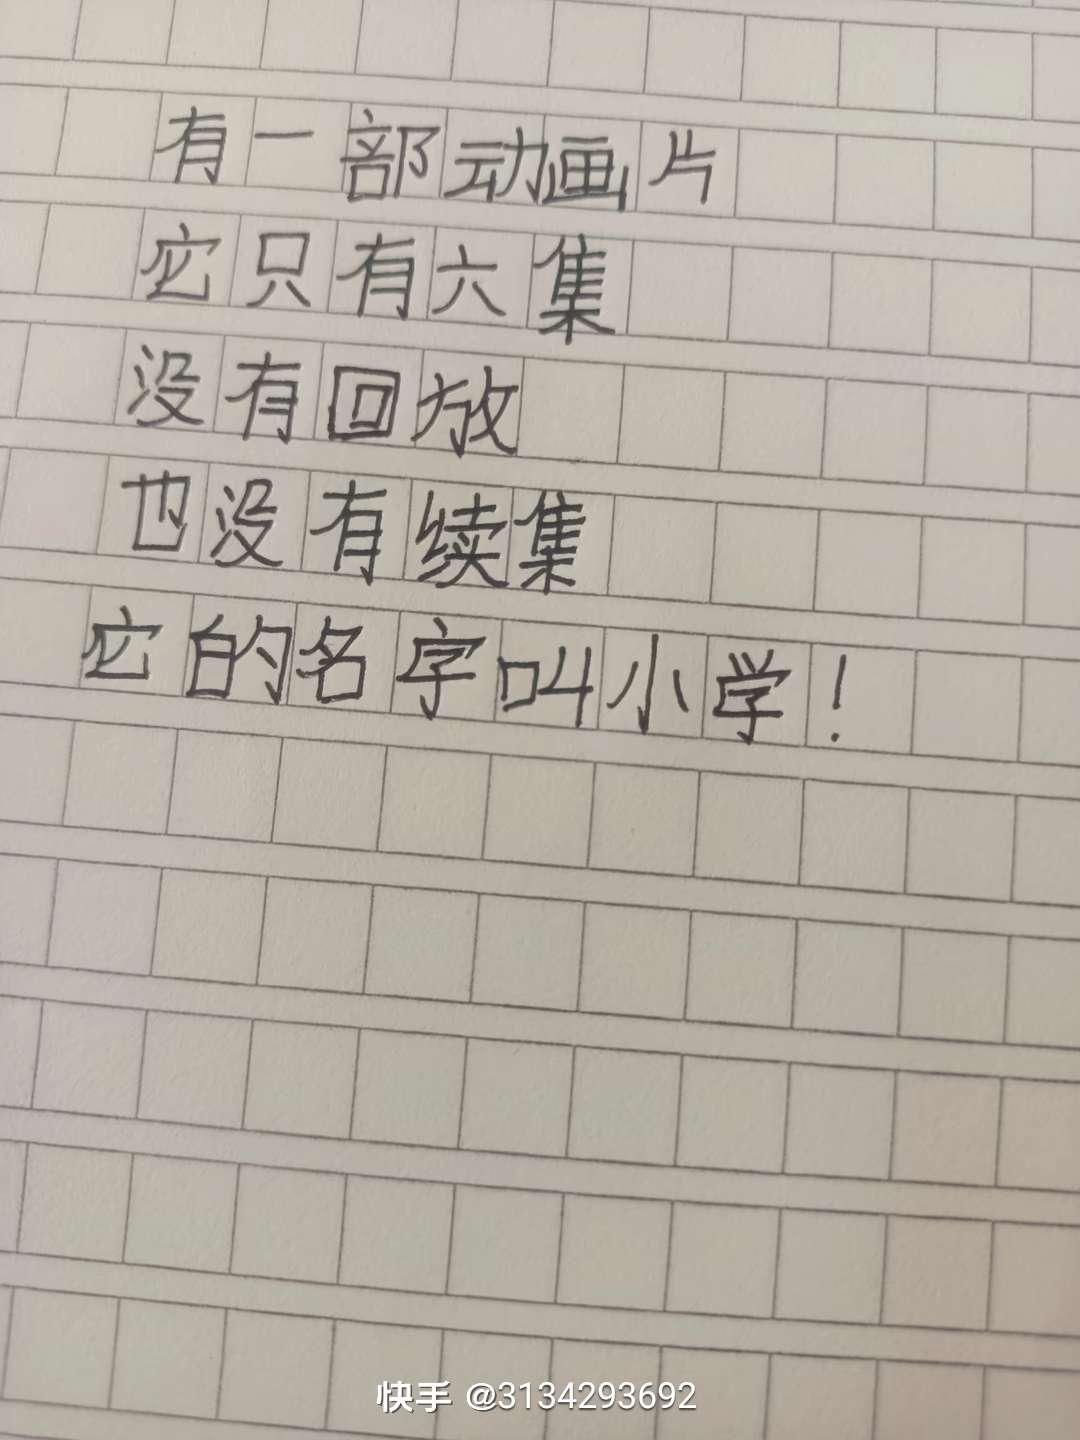 有一部动画片
它只有六集
没有回放
也没有续集
它的名字叫小学！
快手 @3134293692